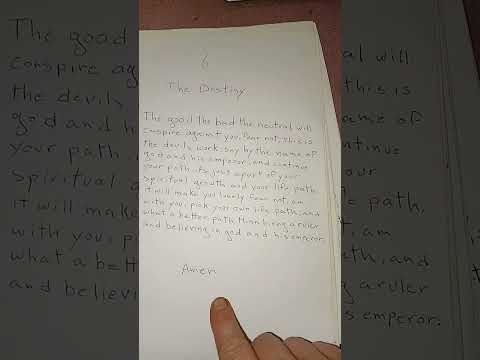 6
The Destiny
The good the bad the neutral will
conspire against you, fear not, this is
the devils work, say by the name of
god and his emperor, and continue
your path, its just apart of your
spiritual growth and your life path
it will make you lonely fear not, am
with you, pick your own life path, and
what a better path than being a ruler
and believing in god and his emperor.
Amen